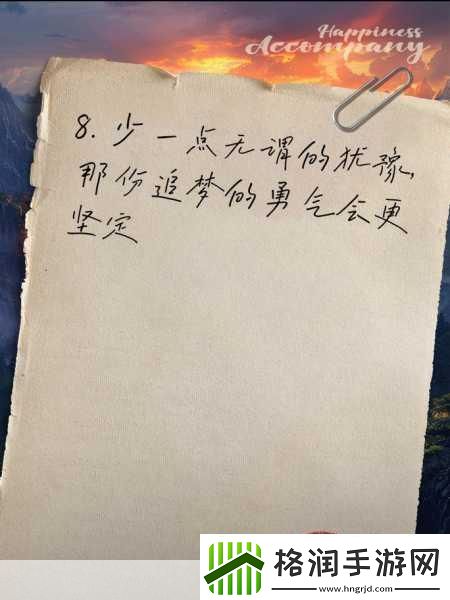 Happiness
Accompany
8.少一点无谓的犹豫,
那份追梦的勇气会更
坚定
格润手游网
www.hngrjd.com